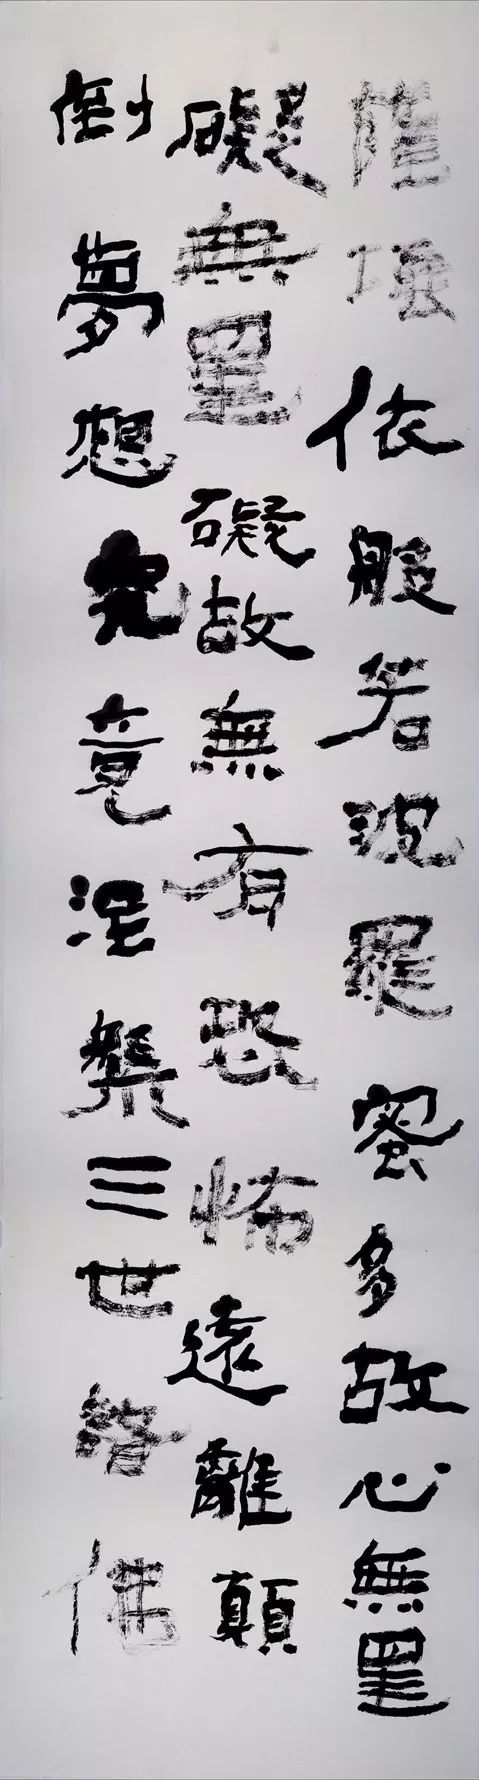 薩埵依般若波羅蜜多故心無罣
礙無罣礙故無有恐怖遠離顛
倒夢想究竟涅槃三世諸佛